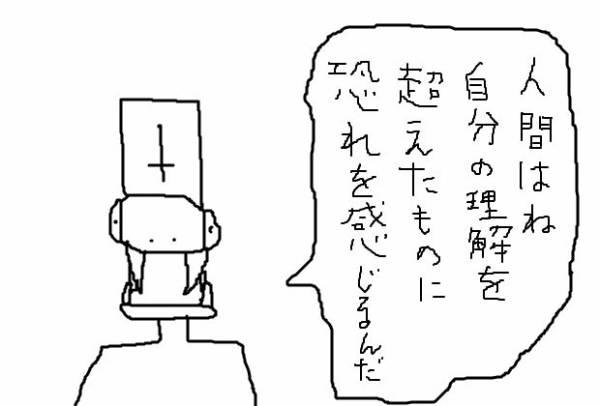 人間はね
自分の理解を
超えたものに
恐れを感じるんだ